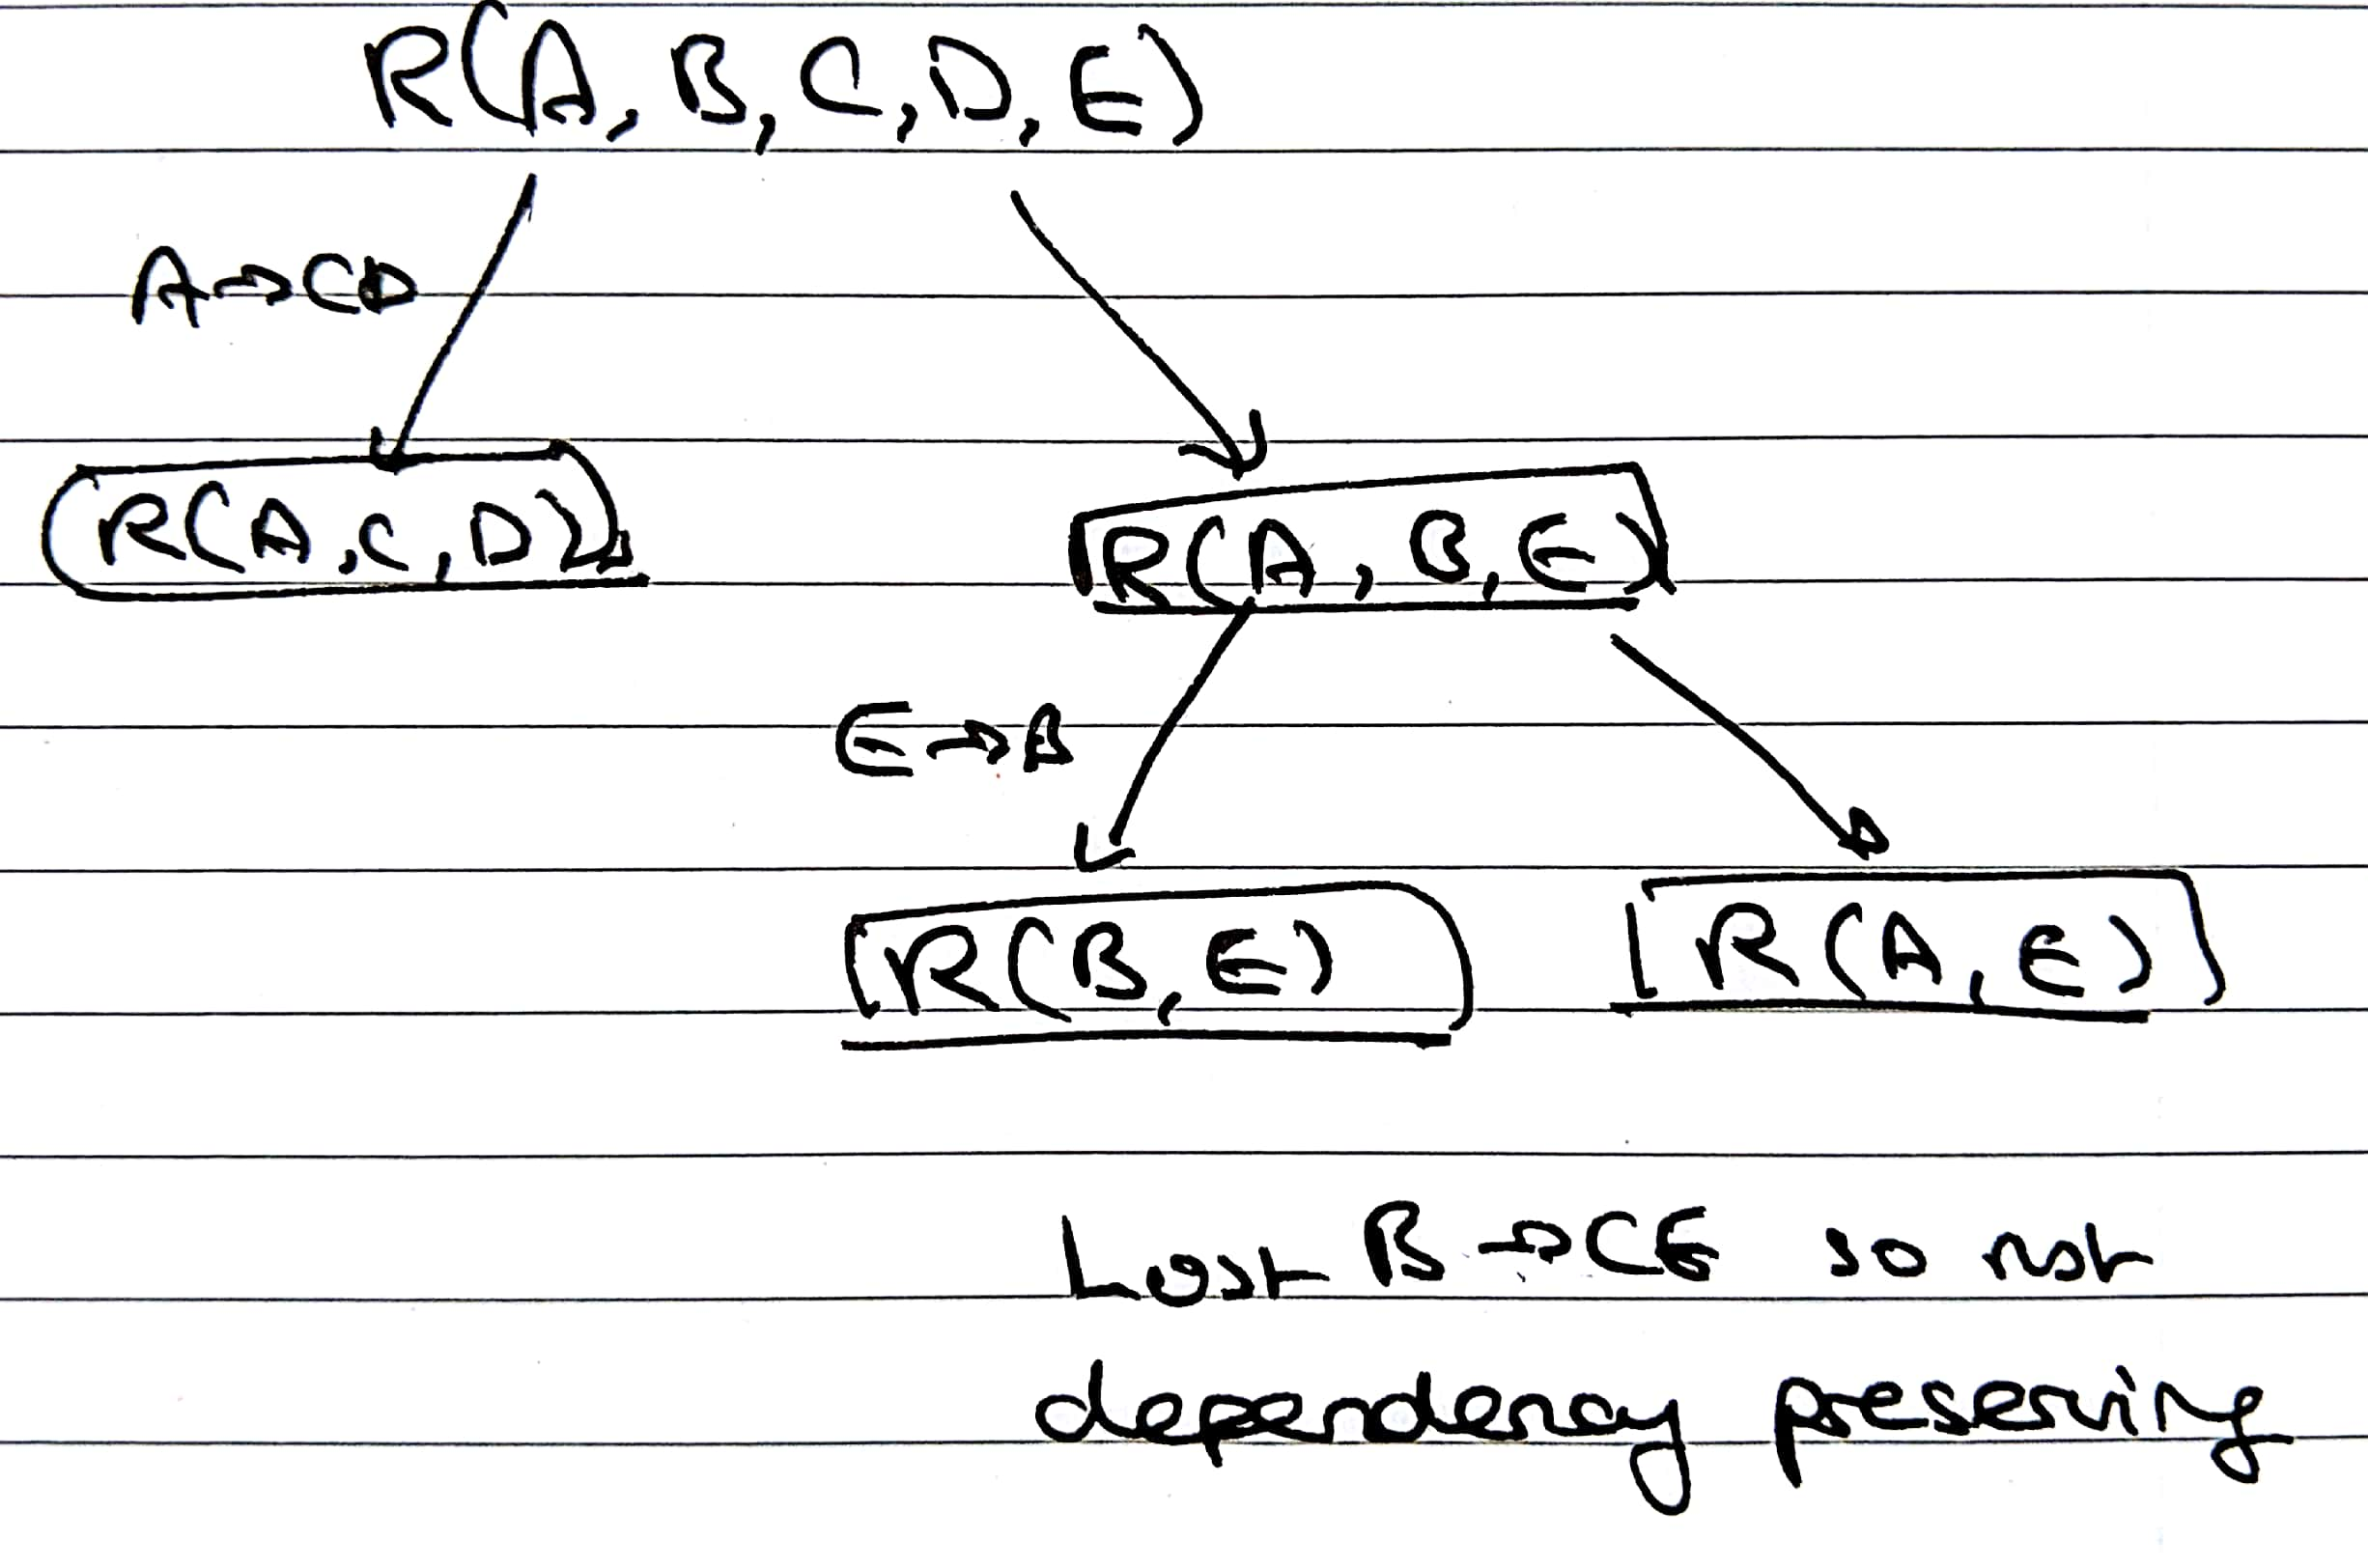 R(A, B, C, D, E)
A→CD
R(A, C, D)
R(A, B, E)
E→B
R(B, E)
R(A, E)
Lost B→CE so not
dependency preserving